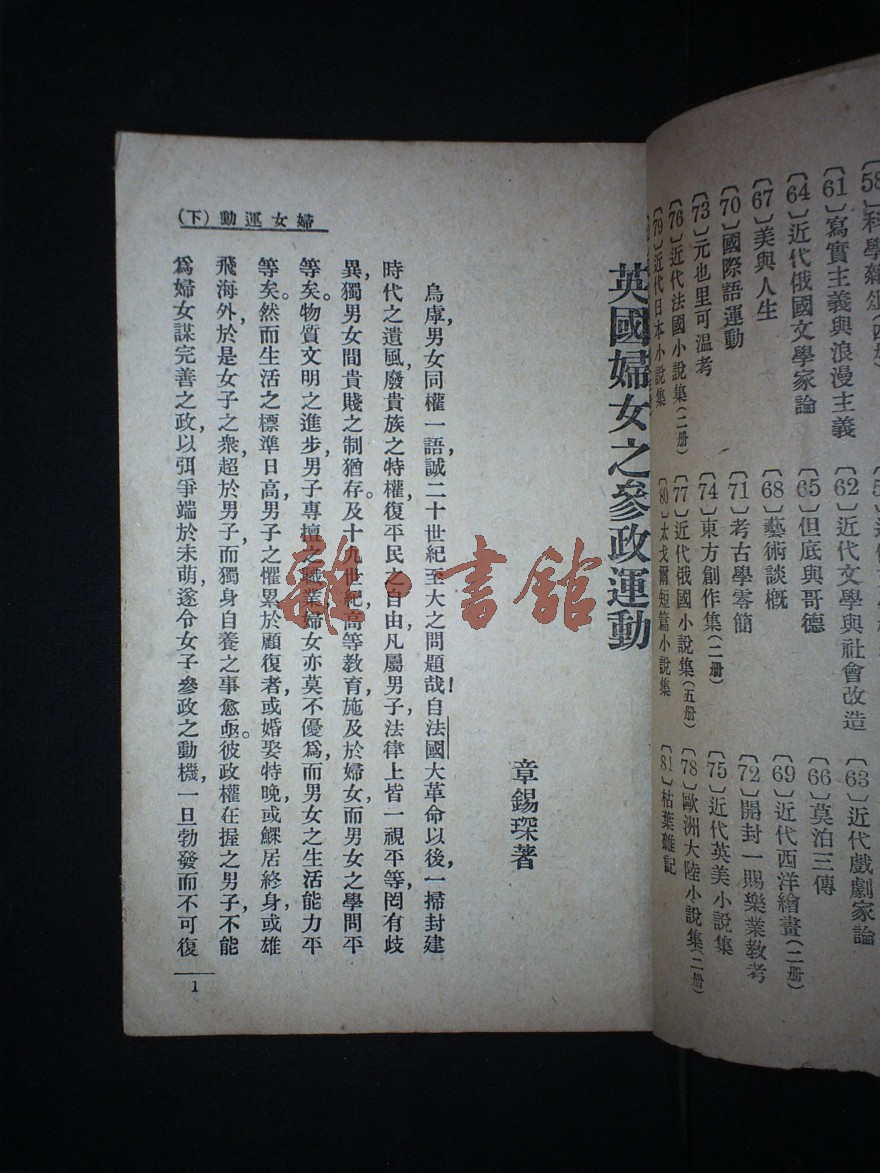 58〕科學雜俎
〔61〕寫實主義與浪漫主義
〔62〕近代文學與社會改造
〔63〕近代戲劇家論
〔64〕近代俄國文學家論
〔65〕但底與哥德
〔66〕莫泊三傳
〔67〕美與人生
〔68〕藝術談概
〔69〕近代西洋繪畫(二册)
〔70〕國際語運動
〔71〕考古學零簡
〔72〕開封一賜樂業教考
〔73〕元也里可温考
〔74〕東方創作集(二册)
〔75〕近代英美小說集
〔76〕近代法國小說集(二册)
〔77〕近代俄國小說集(五册)
〔78〕歐洲大陸小說集(二册)
〔79〕近代日本小說集
〔80〕太戈爾短篇小說集
〔81〕枯葉雜記
英國婦女之參政運動
章錫琛著
烏虖,男女同權一語,誠二十世紀至大之問題哉!自法國大革命以後,一掃封建
時代之遺風,廢貴族之特權,復平民之自由,凡屬男子,法律上皆一視平等,罔有歧
異,獨男女間貴賤之制猶存。及十九世紀,高等教育施及於婦女,而男女之學問平
等矣。物質文明之進步,男子專擅之職業,婦女亦莫不優爲,而男女之生活能力平
等矣。然而生活之標準日高,男子之懼累於顧復者,或婚娶特晚,或鰥居終身,或雄
飛海外,於是女子之衆,超於男子,而獨身自養之事愈亟。彼政權在握之男子,不能
爲婦女謀完善之政,以弭爭端於未萌,遂令女子參政之動機,一旦勃發而不可復
婦女運動(下)
1
雜·書館